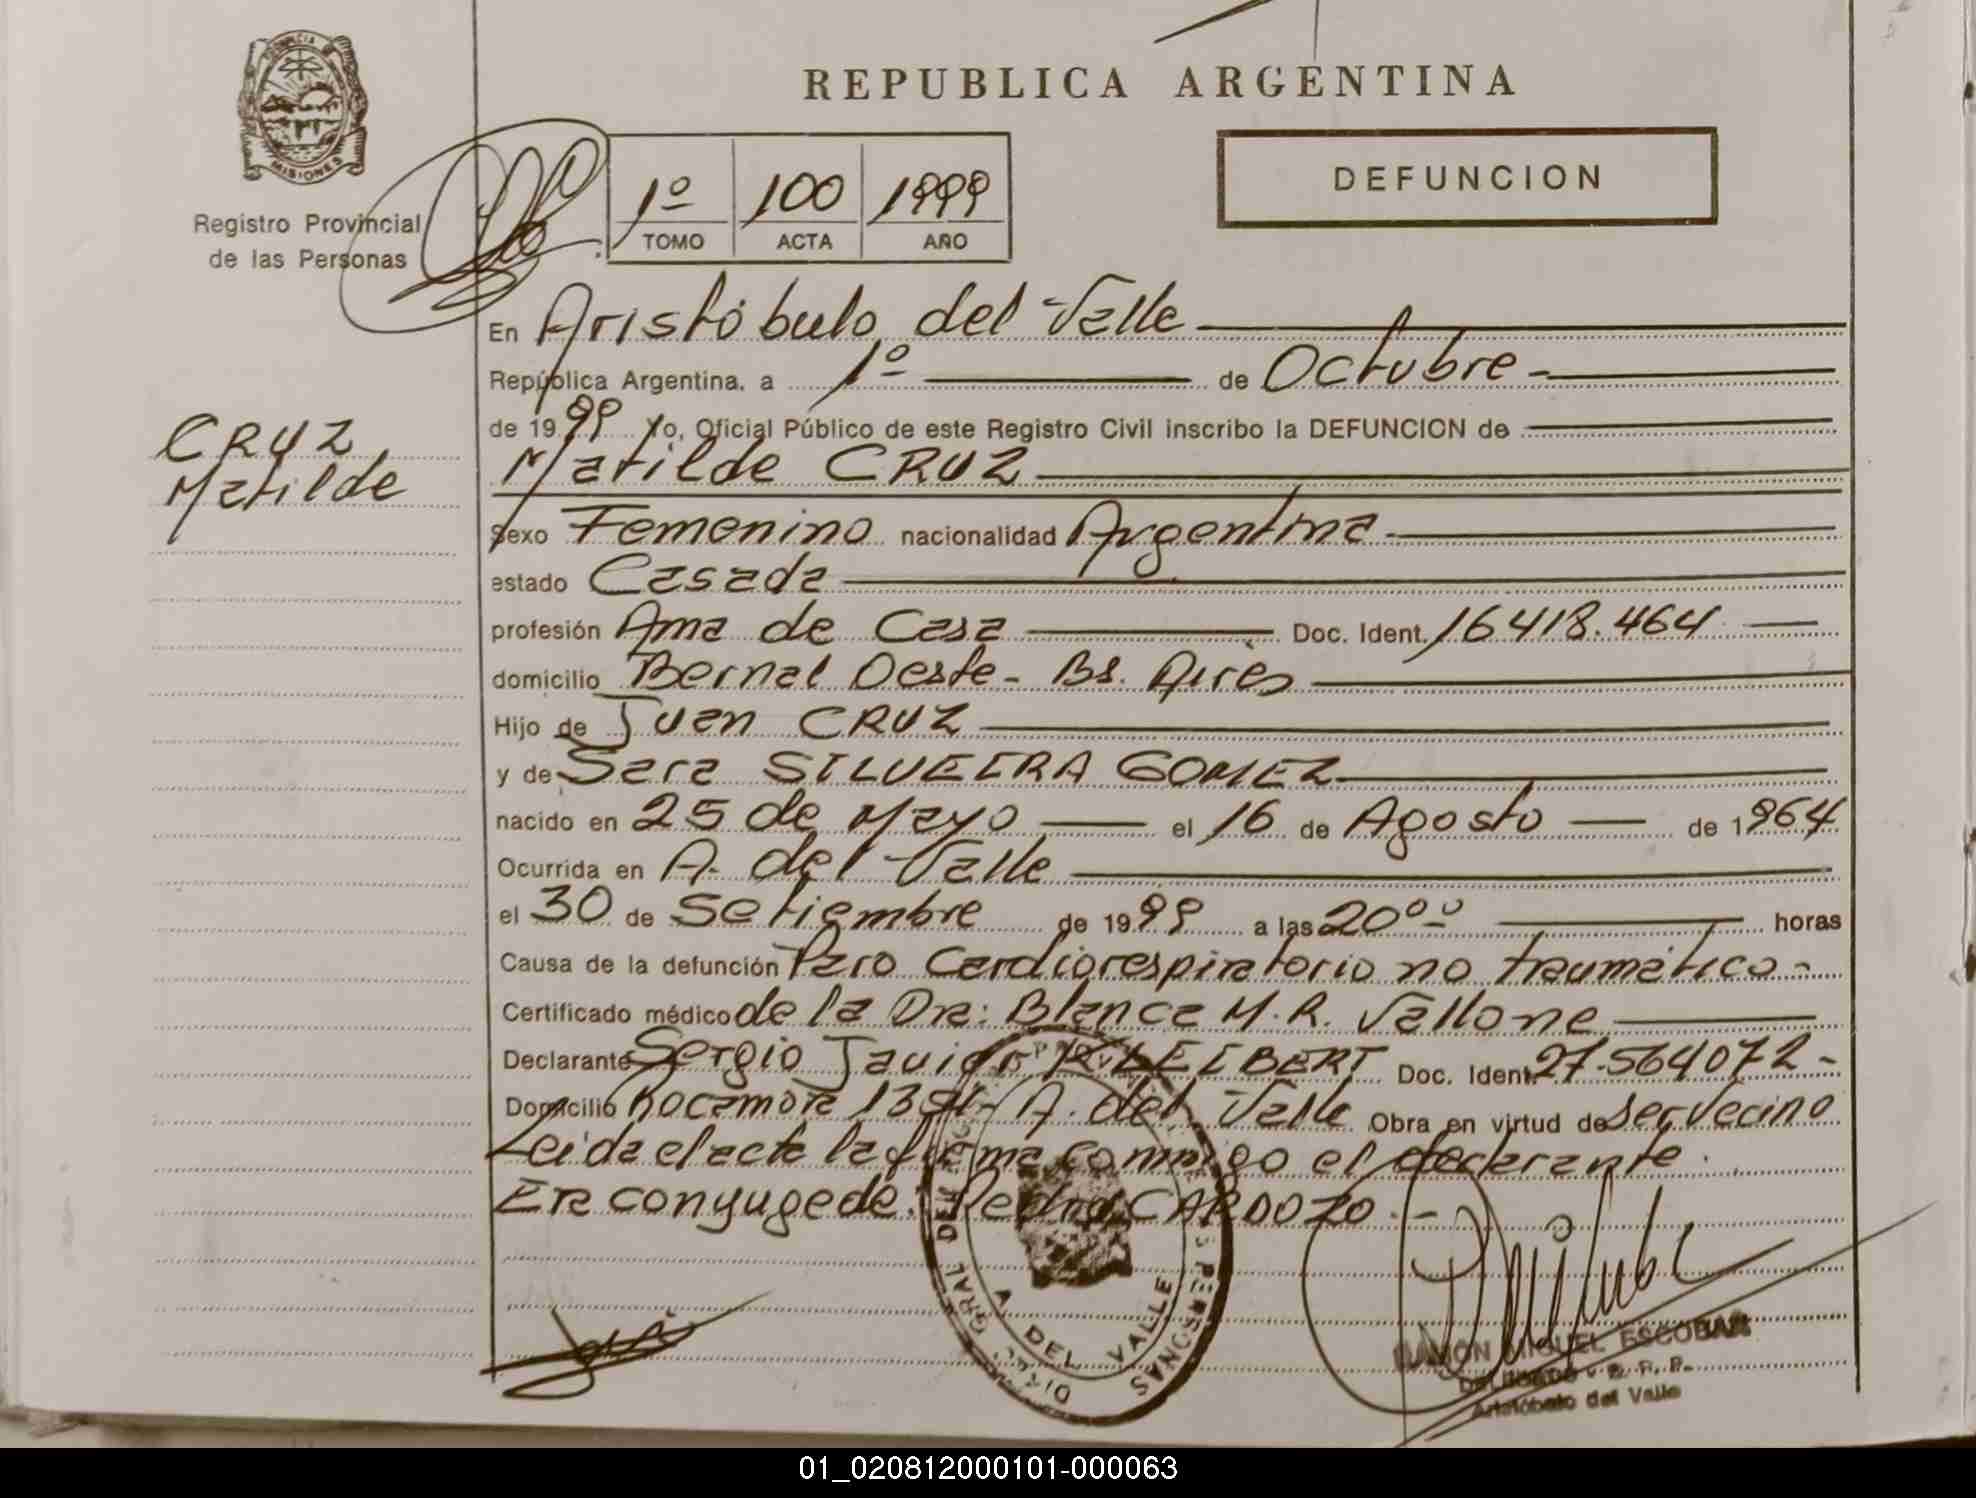 REPUBLICA ARGENTINA
PROVINCIA D
MISIONES
Registro Provincial
de las Personas
1º 100 1999
TOMO ACTA AÑO
DEFUNCION
CRUZ
Matilde
En Aristóbulo del Valle
República Argentina, a 1º de Octubre
de 1999 Yo, Oficial Público de este Registro Civil inscribo la DEFUNCION de
Matilde CRUZ
Sexo Femenino nacionalidad Argentina
estado Casada
profesión Ama de Casa Doc. Ident. 16418.464
domicilio Bernal Oeste - Bs. Aires
Hijo de Juan CRUZ
y de Sara SILVEIRA GOMEZ
nacido en 25 de Mayo el 16 de Agosto de 1964
Ocurrida en A. del Valle
el 30 de Setiembre de 1999 a las 20°° horas
Causa de la defunción Paro Cardiorespiratorio no traumático-
Certificado médico de la Dra: Blanca M. R. Vallone
Declarante Sergio Javier Doc. Ident. 27.564072-
Domicilio Rocamora A. del Valle Obra en virtud de ser vecino
Leida el acta la firma conmigo el declarante.
Era conyuge de: Pedro CARDOZO.-
DIREC. GRAL DE PERSONAS
A DEL VALLE
RAMON MIGUEL ESCOBAR
Aristóbulo del Valle
01_020812000101-000063